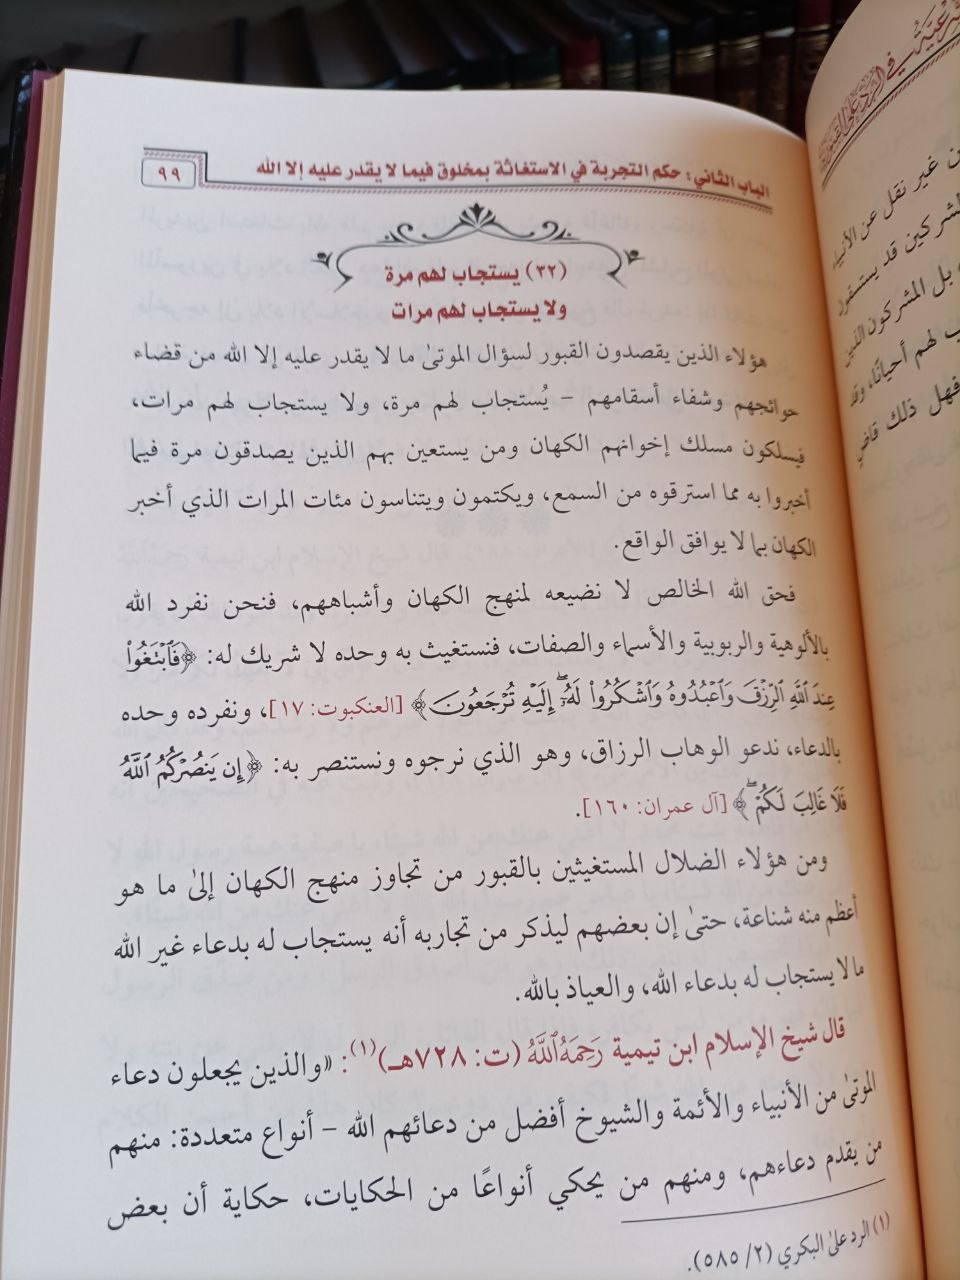 الباب الثاني: حكم التجربة في الاستغاثة بمخلوق فيما لا يقدر عليه إلا الله
٩٩
(٣٢) يستجاب لهم مرة
ولا يستجاب لهم مرات
هؤلاء الذين يقصدون القبور لسؤال الموتىٰ ما لا يقدر عليه إلا الله من قضاء
حوائجهم وشفاء أسقامهم – يُستجاب لهم مرة، ولا يستجاب لهم مرات،
فيسلكون مسلك إخوانهم الكهان ومن يستعين بهم الذين يصدقون مرة فيما
أخبروا به مما استرقوه من السمع، ويكتمون ويتناسون مئات المرات الذي أخبر
الكهان بما لا يوافق الواقع.
فحق الله الخالص لا نضيعه لمنهج الكهان وأشباههم، فنحن نفرد الله
بالألوهية والربوبية والأسماء والصفات، فنستغيث به وحده لا شريك له: ﴿فَٱبْتَغُوا۟
عِندَ ٱللَّهِ ٱلرِّزْقَ وَٱعْبُدُوهُ وَٱشْكُرُوا۟ لَهُۥٓ ۖ إِلَيْهِ تُرْجَعُونَ﴾ [العنكبوت: ١٧]، ونفرده وحده
بالدعاء، ندعو الوهاب الرزاق، وهو الذي نرجوه ونستنصر به: ﴿إِن يَنصُرْكُمُ ٱللَّهُ
فَلَا غَالِبَ لَكُمْ ۖ﴾ [آل عمران: ١٦٠].
ومن هؤلاء الضلال المستغيثين بالقبور من تجاوز منهج الكهان إلىٰ ما هو
أعظم منه شناعة، حتىٰ إن بعضهم ليذكر من تجاربه أنه يستجاب له بدعاء غير الله
ما لا يستجاب له بدعاء الله، والعياذ بالله.
قال شيخ الإسلام ابن تيمية رَحِمَهُ ٱللَّهُ (ت: ٧٢٨هـ)(١): «والذين يجعلون دعاء
الموتىٰ من الأنبياء والأئمة والشيوخ أفضل من دعائهم الله – أنواع متعددة: منهم
من يقدم دعاءهم، ومنهم من يحكي أنواعًا من الحكايات، حكاية أن بعض
(١) الرد علىٰ البكري (٢/ ٥٨٥).
ن غير نقل عن الأنبياء
لشركين قد يستسقون
بل المشركون الذين
ب لهم أحيانًا، وقد
فهل ذلك قاضٍ